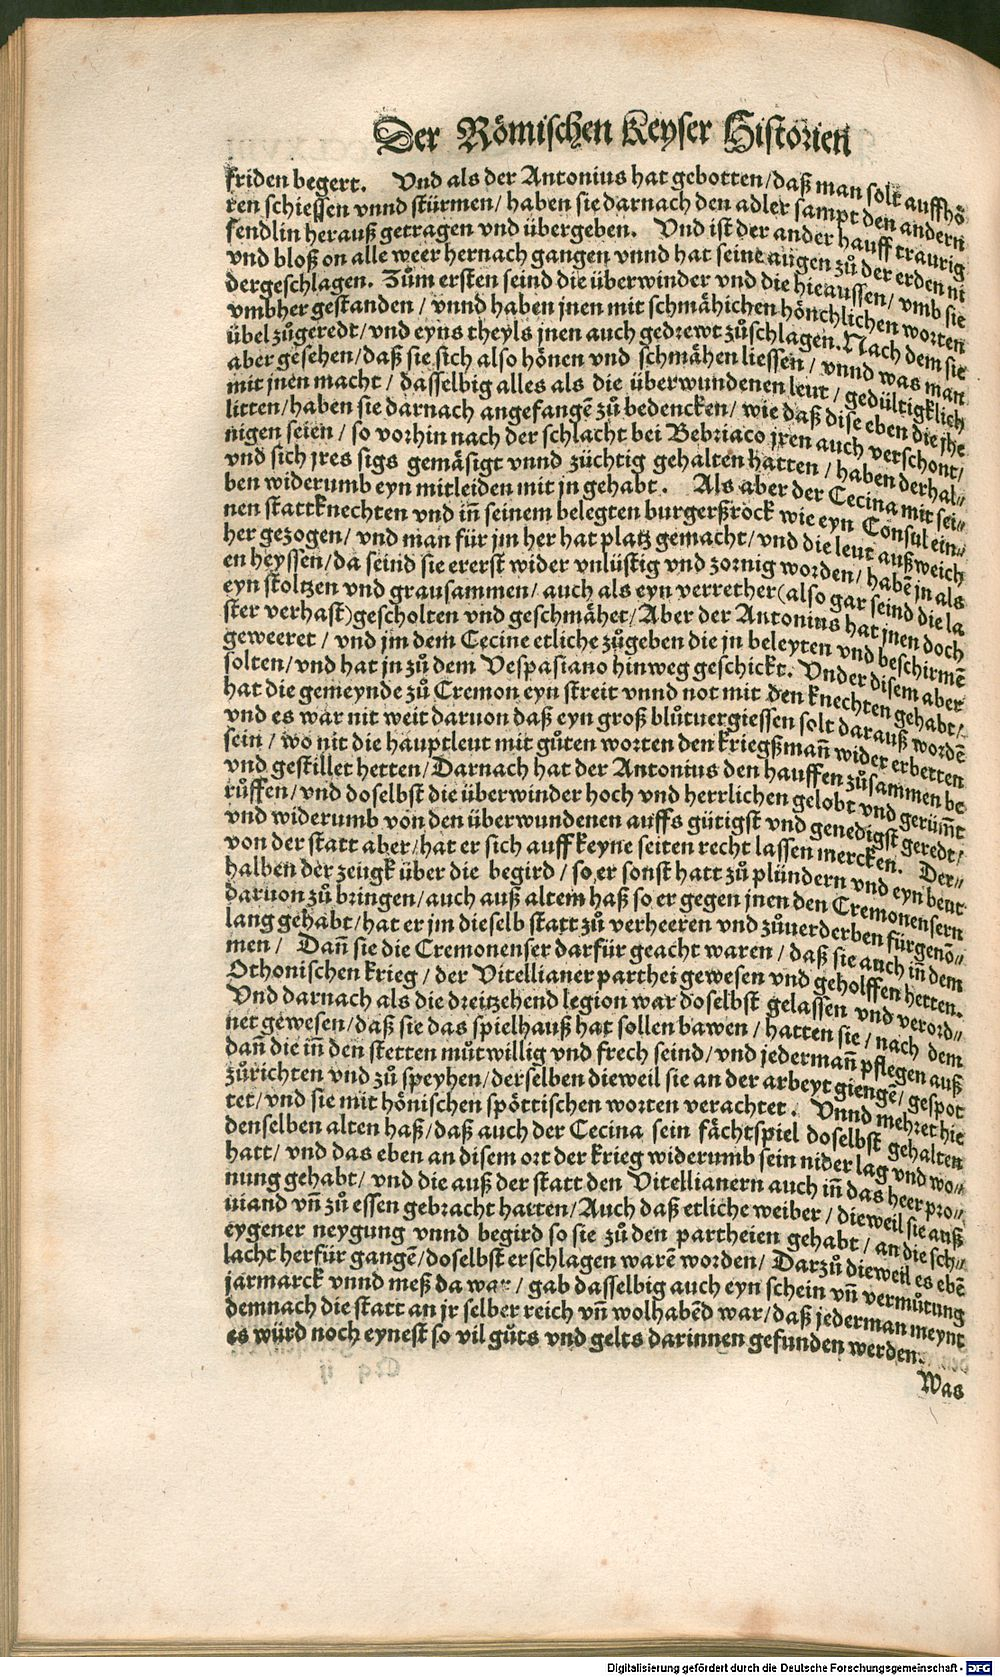 Der Römischen Keyser Historien
friden begert. Vnd als der Antonius hat gebotten/daß man solt auffhö
ren schiessen vnnd stürmen/ haben sie darnach den adler sampt den andern
fendlin herauß getragen vnd übergeben. Vnd ist der ander hauff traurig
vnd bloß on alle weer hernach gangen vnnd hat seine augen zů der erden ni
dergeschlagen. Zům ersten seind die überwinder vnd die hieaussen/ vmb sie
vmbher gestanden/ vnnd haben jnen mit schmähichen hönchlichen worten
übel zůgeredt/vnd eyns theyls jnen auch gedrewt zůschlagen. Nach dem sie
aber gesehen/daß sie sich also hönen vnd schmähen liessen/ vnnd was man
mit jnen macht/ dasselbig alles als die überwundenen leut/ gedültigklich
litten/haben sie darnach angefangē zů bedencken/ wie daß dise eben die jhe
nigen seien/ so vorhin nach der schlacht bei Bebriaco jren auch verschont/
vnd sich jres sigs gemäsigt vnnd züchtig gehalten hatten/ haben derhal⸗
ben widerumb eyn mitleiden mit jn gehabt. Als aber der Cecina mit sei⸗
nen stattknechten vnd iñ seinem belegten burgerßrock wie eyn Consul ein⸗
her gezogen/ vnd man für jm her hat platz gemacht/vnd die leut auß weich
en heyssen/da seind sie ererst wider vnlüstig vnd zornig worden/ habē jn als
eyn stoltzen vnd grausammen/ auch als eyn verrether(also gar seind die la
ster verhast)gescholten vnd geschmähet/Aber der Antonius hat jnen doch
geweeret/ vnd jm dem Cecine etliche zůgeben die jn beleyten vnd beschirmē
solten/vnd hat jn zů dem Vespasiano hinweg geschickt. Vnder disem aber
hat die gemeynde zů Cremon eyn streit vnnd not mit den knechten gehabt/
vnd es war nit weit daruon daß eyn groß blůtuergiessen solt darauß wordē
sein/ wo nit die hauptleut mit gůten worten den kriegßmañ wider erbetten
vnd gestillet hetten/Darnach hat der Antonius den hauffen zůsammen be
růffen/vnd doselbst die überwinder hoch vnd herrlichen gelobt vnd gerům̃t
vnd widerumb von den überwundenen auffs gütigst vnd genedigst geredt/
von der statt aber/hat er sich auff keyne seiten recht lassen mercken. Der⸗
halben der zeugk über die begird/so er sonst hatt zů plündern vnd eyn beut
daruon zů bringen/auch auß altem haß so er gegen jnen den Cremonensern
lang gehabt/hat er jm dieselb statt zů verheeren vnd zůuerderben fürgenō⸗
men/ Dañ sie die Cremonenser darfür geacht waren/ daß sie auch iñ dem
Othonischen krieg/ der Vitellianer parthei gewesen vnd geholffen hetten.
Vnd darnach als die dreitzehend legion war doselbst gelassen vnd verord⸗
net gewesen/daß sie das spielhauß hat sollen bawen/ hatten sie/ nach dem
dañ die iñ den stetten můtwillig vnd frech seind/vnd jedermañ pflegen auß
zůrichten vnd zů speyhen/derselben dieweil sie an der arbeyt giengē/ gespot
tet/vnd sie mit hönischen spöttischen worten verachtet. Vnnd mehret hie
denselben alten haß/daß auch der Cecina sein fächtspiel doselbst gehalten
hatt/ vnd das eben an disem ort der krieg widerumb sein nider lag vnd wo⸗
nung gehabt/ vnd die auß der statt den Vitellianern auch iñ das heer pro⸗
uiand vñ zů essen gebracht hatten/Auch daß etliche weiber/ dieweil sie auß
eygener neygung vnnd begird so sie zů den partheien gehabt/ an die sch⸗
lacht herfür gangē/doselbst erschlagen warē worden/ Darzů dieweil es ebē
jarmarck vnnd meß da war/ gab dasselbig auch eyn schein vñ vermůtung
demnach die statt an jr selber reich vñ wolhabēd war/daß jederman meynt
es würd noch eynest so vil gůts vnd gelts darinnen gefunden werden.
Was
Digitalisierung gefördert durch die Deutsche Forschungsgemeinschaft - DFG